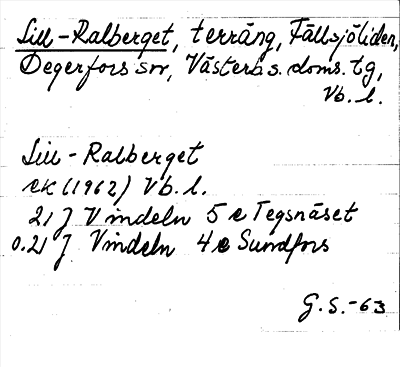 Lill-Ralberget, terräng, Fällsjöliden,
Degerfors sn, Västerb s. doms. tg,
Vb. l.
Lill-Ralberget
ek (1962) Vb. l.
21 J Vindeln 5 e Tegsnäset
0.21 J Vindeln 4 e Sundfors
G. S. -63